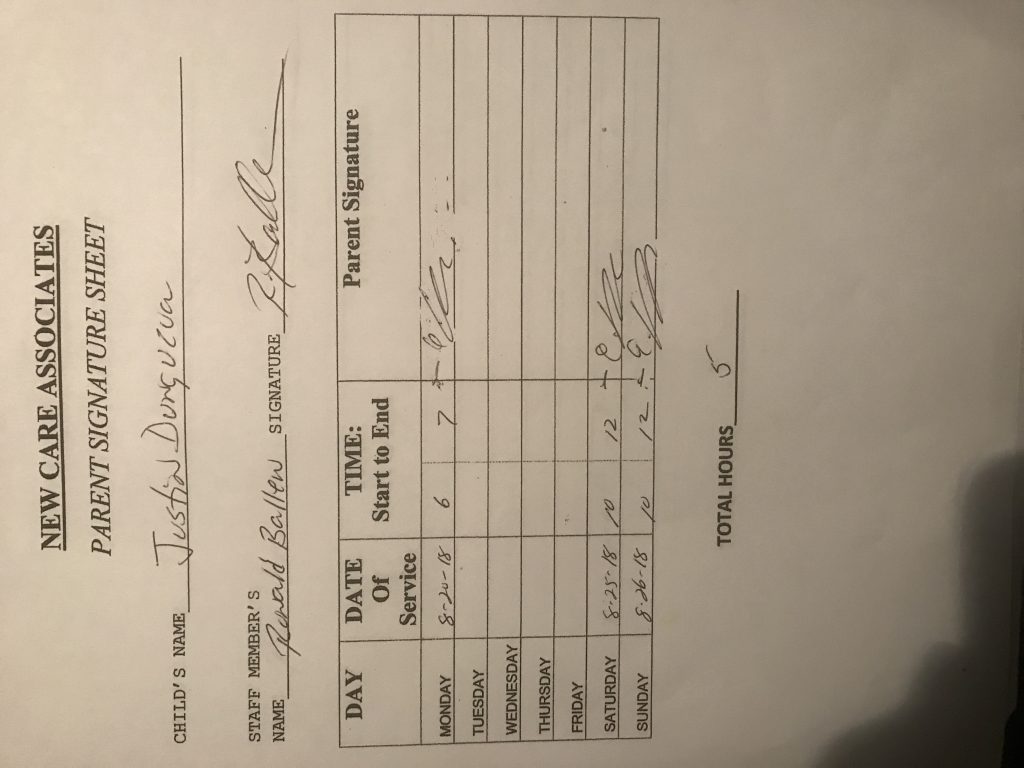 NEW CARE ASSOCIATES
PARENT SIGNATURE SHEET
CHILD'S NAME Justin
STAFF MEMBER'S
NAME Ronald Ballew SIGNATURE
DAY DATE Of Service TIME: Start to End Parent Signature
MONDAY 8-20-18 6 7
TUESDAY
WEDNESDAY
THURSDAY
FRIDAY
SATURDAY 8-25-18 10 12
SUNDAY 8-26-18 10 12
TOTAL HOURS 5